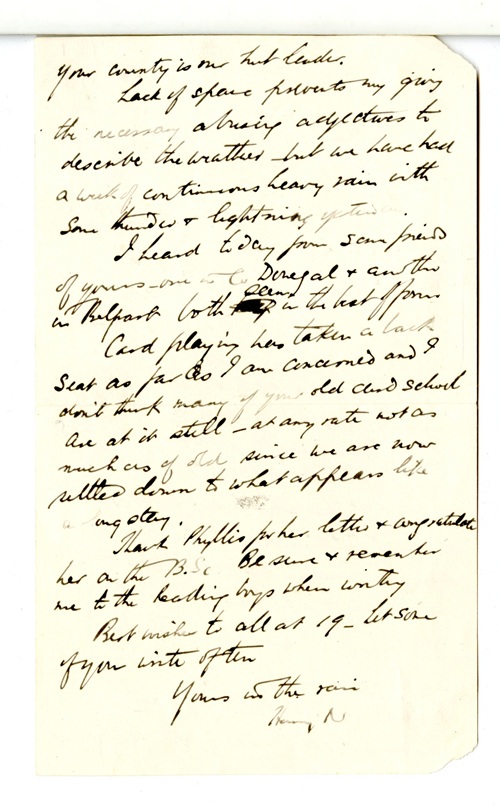 your county is our hut leader.
Lack of space prevents my giving
the necessary abusing adjectives to
describe the weather - but we have had
a week of continuous heavy rain with
some thunder & lightning yesterday.
I heard today from some friends
of yours - one in Co Donegal & another
in Belfast both seem in the best of form
Card playing has taken a back
seat as far as I am concerned and I
don't think many of your old card school
are at it still - at any rate not as
much as of old since we are now
settled down to what appears like
a long stay.
Thank Phyllis for her letter & congratulate
her on the B.Sc. Be sure & remember
me to the leading boys when writing
Best wishes to all at 19 - Let some
of you write often
Yours in the rain
Henry N